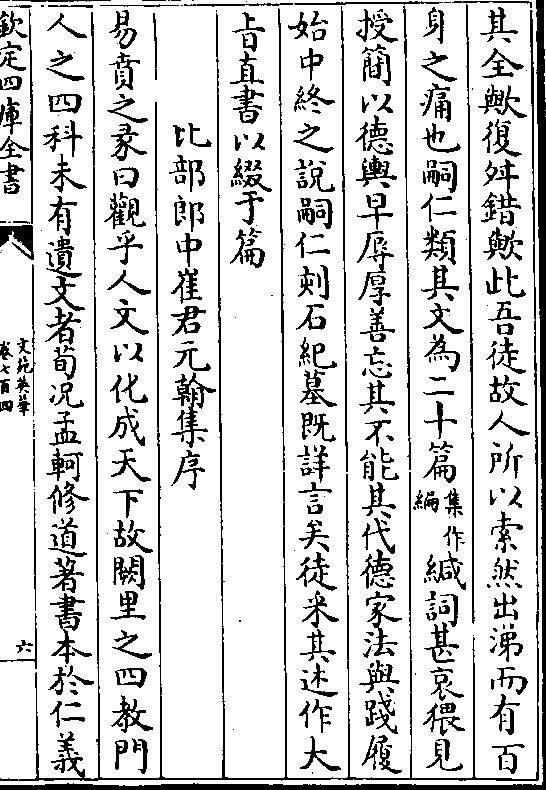 其全歟復舛錯歟此吾徒故人所以索然出涕而有百
身之痛也嗣仁類其文為二十篇集作編緘詞甚哀猥見
授簡以德輿早辱厚善忘其不能其代德家法與踐履
始中終之說嗣仁刻石紀墓既詳言矣徒采其述作大
旨直書以綴于篇
比部郎中崔君元翰集序
易賁之彖曰觀乎人文以化成天下故闕里之四教門
人之四科未有遺文者荀況孟軻修道著書本於仁義
欽定四庫全書
文苑英華
卷七百四
六